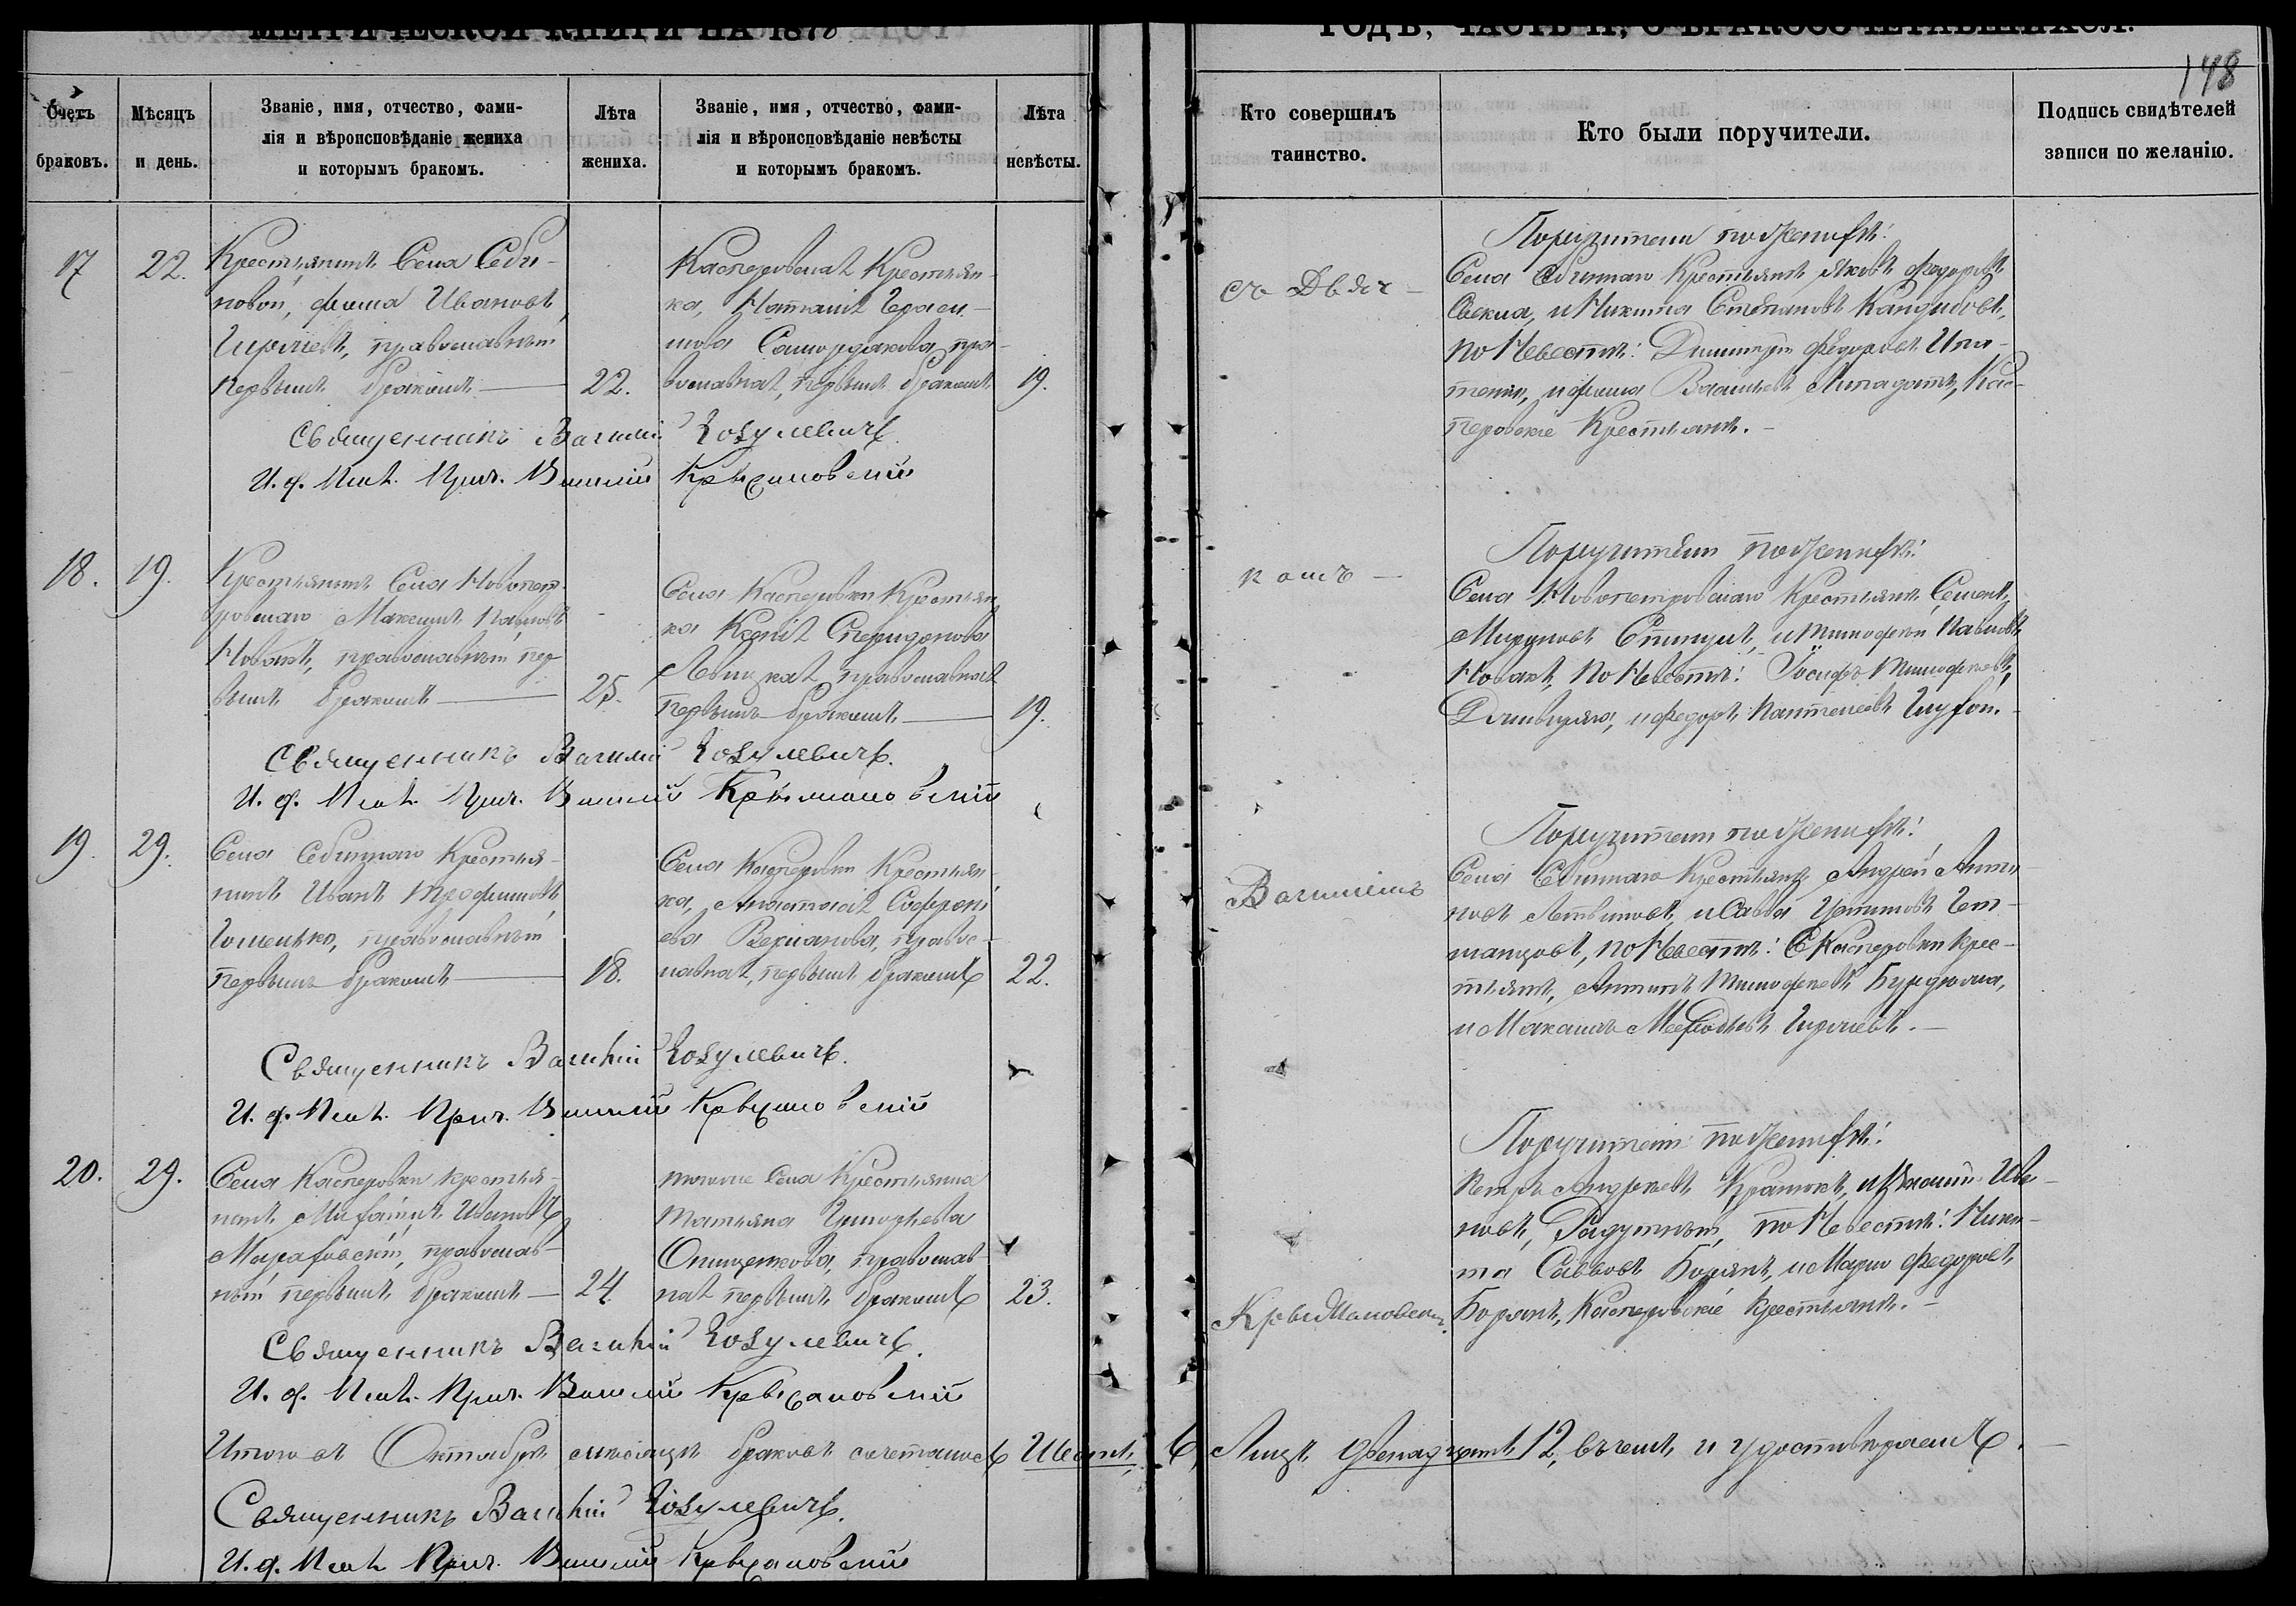 МЕТРИЧЕСКОЙ КНИГИ НА 1878
ГОДЪ, ЧАСТЬ II, О БРАКОСОЧЕТАВШИХСЯ.
148
Счетъ браковъ.
Мѣсяцъ и день.
Званіе, имя, отчество, фами-
лія и вѣроисповѣданіе жениха
и которымъ бракомъ.
Лѣта жениха.
Званіе, имя, отчество, фами-
лія и вѣроисповѣданіе невѣсты
и которымъ бракомъ.
Лѣта невѣсты.
Кто совершилъ
таинство.
Кто были поручители.
Подпись свидѣтелей
записи по желанію.
17
22.
Крестьянинъ Села Себи-
новой, Фома Ивановъ
православный
первымъ бракомъ
22.
Касперовская Крестьян-
ка, Наталія Гераси-
мова Самордакова, пра-
вославная, первымъ бракомъ
19.
съ Дьяч-
Поручители по женихѣ:
Села Крестьяне Яковъ Федоровъ
Свекла, и Никита Степановъ Кандибовъ,
по Невѣстѣ: Димитрій Федоровъ
и Фома Васильевъ Кас-
перовскіе Крестьяне.
Священникъ Василій Козулевичъ
И. д. Псал. Прич. Василій Крыжановскій
18.
19.
Крестьянинъ Села Новопет-
ровскаго Максимъ Павловъ
Новакъ, православный пер-
вымъ бракомъ
25.
Села Касперовки Крестьян-
ка Ксенія Спиридонова
Левицкая православная
первымъ бракомъ
19.
комъ
Поручители по женихѣ:
Села Новопетровскаго Крестьяне Семенъ
и Тимофей Павловъ
Новакъ, по Невѣстѣ: Іосифъ Тимофеевъ
и Федоръ Пантелеевъ
Священникъ Василій Козулевичъ.
И. д. Псал. Прич. Василій Крыжановскій
19.
29.
Села Крестья-
нинъ Иванъ Трофимовъ
Гоменько, православный
первымъ бракомъ
18.
Села Касперовки Крестьян-
ка, Анастасія Софроні-
ева правос-
лавная, первымъ бракомъ
22.
Василіемъ
Поручители по женихѣ:
Села Крестьяне Андрей Анти-
повъ Литвиновъ, и Савва
по Невѣстѣ: С. Касперовки крес-
тьяне, Антонъ Тимофеевъ Бурдюжа,
и Максимъ Мефодіевъ
Священникъ Василій Козулевичъ.
И. д. Псал. Прич. Василій Крыжановскій
20.
29.
Села Касперовки крестья-
нинъ Михаилъ Ивановъ
Марафовскій, православ-
ный первымъ бракомъ
24.
тогоже Села Крестьянка
Татьяна Григорьева
Онищенкова, православ-
ная первымъ бракомъ
23.
Крыжановскимъ.
Поручители по женихѣ:
Петръ Андреевъ и Василій Ива-
новъ, по Невѣстѣ: Ники-
та Саввовъ Борянъ, и Марко Федоровъ
Борянъ, Касперовскіе крестьяне.
Священникъ Василій Козулевичъ.
И. д. Псал. Прич. Василій Крыжановскій
Итого въ Октябрѣ мѣсяцѣ браковъ сочеталось Шесть, 6, Лицъ двенадцать 12, въ чемъ и удостовѣряемъ.
Священникъ Василій Козулевичъ.
И. д. Псал. Прич. Василій Крыжановскій